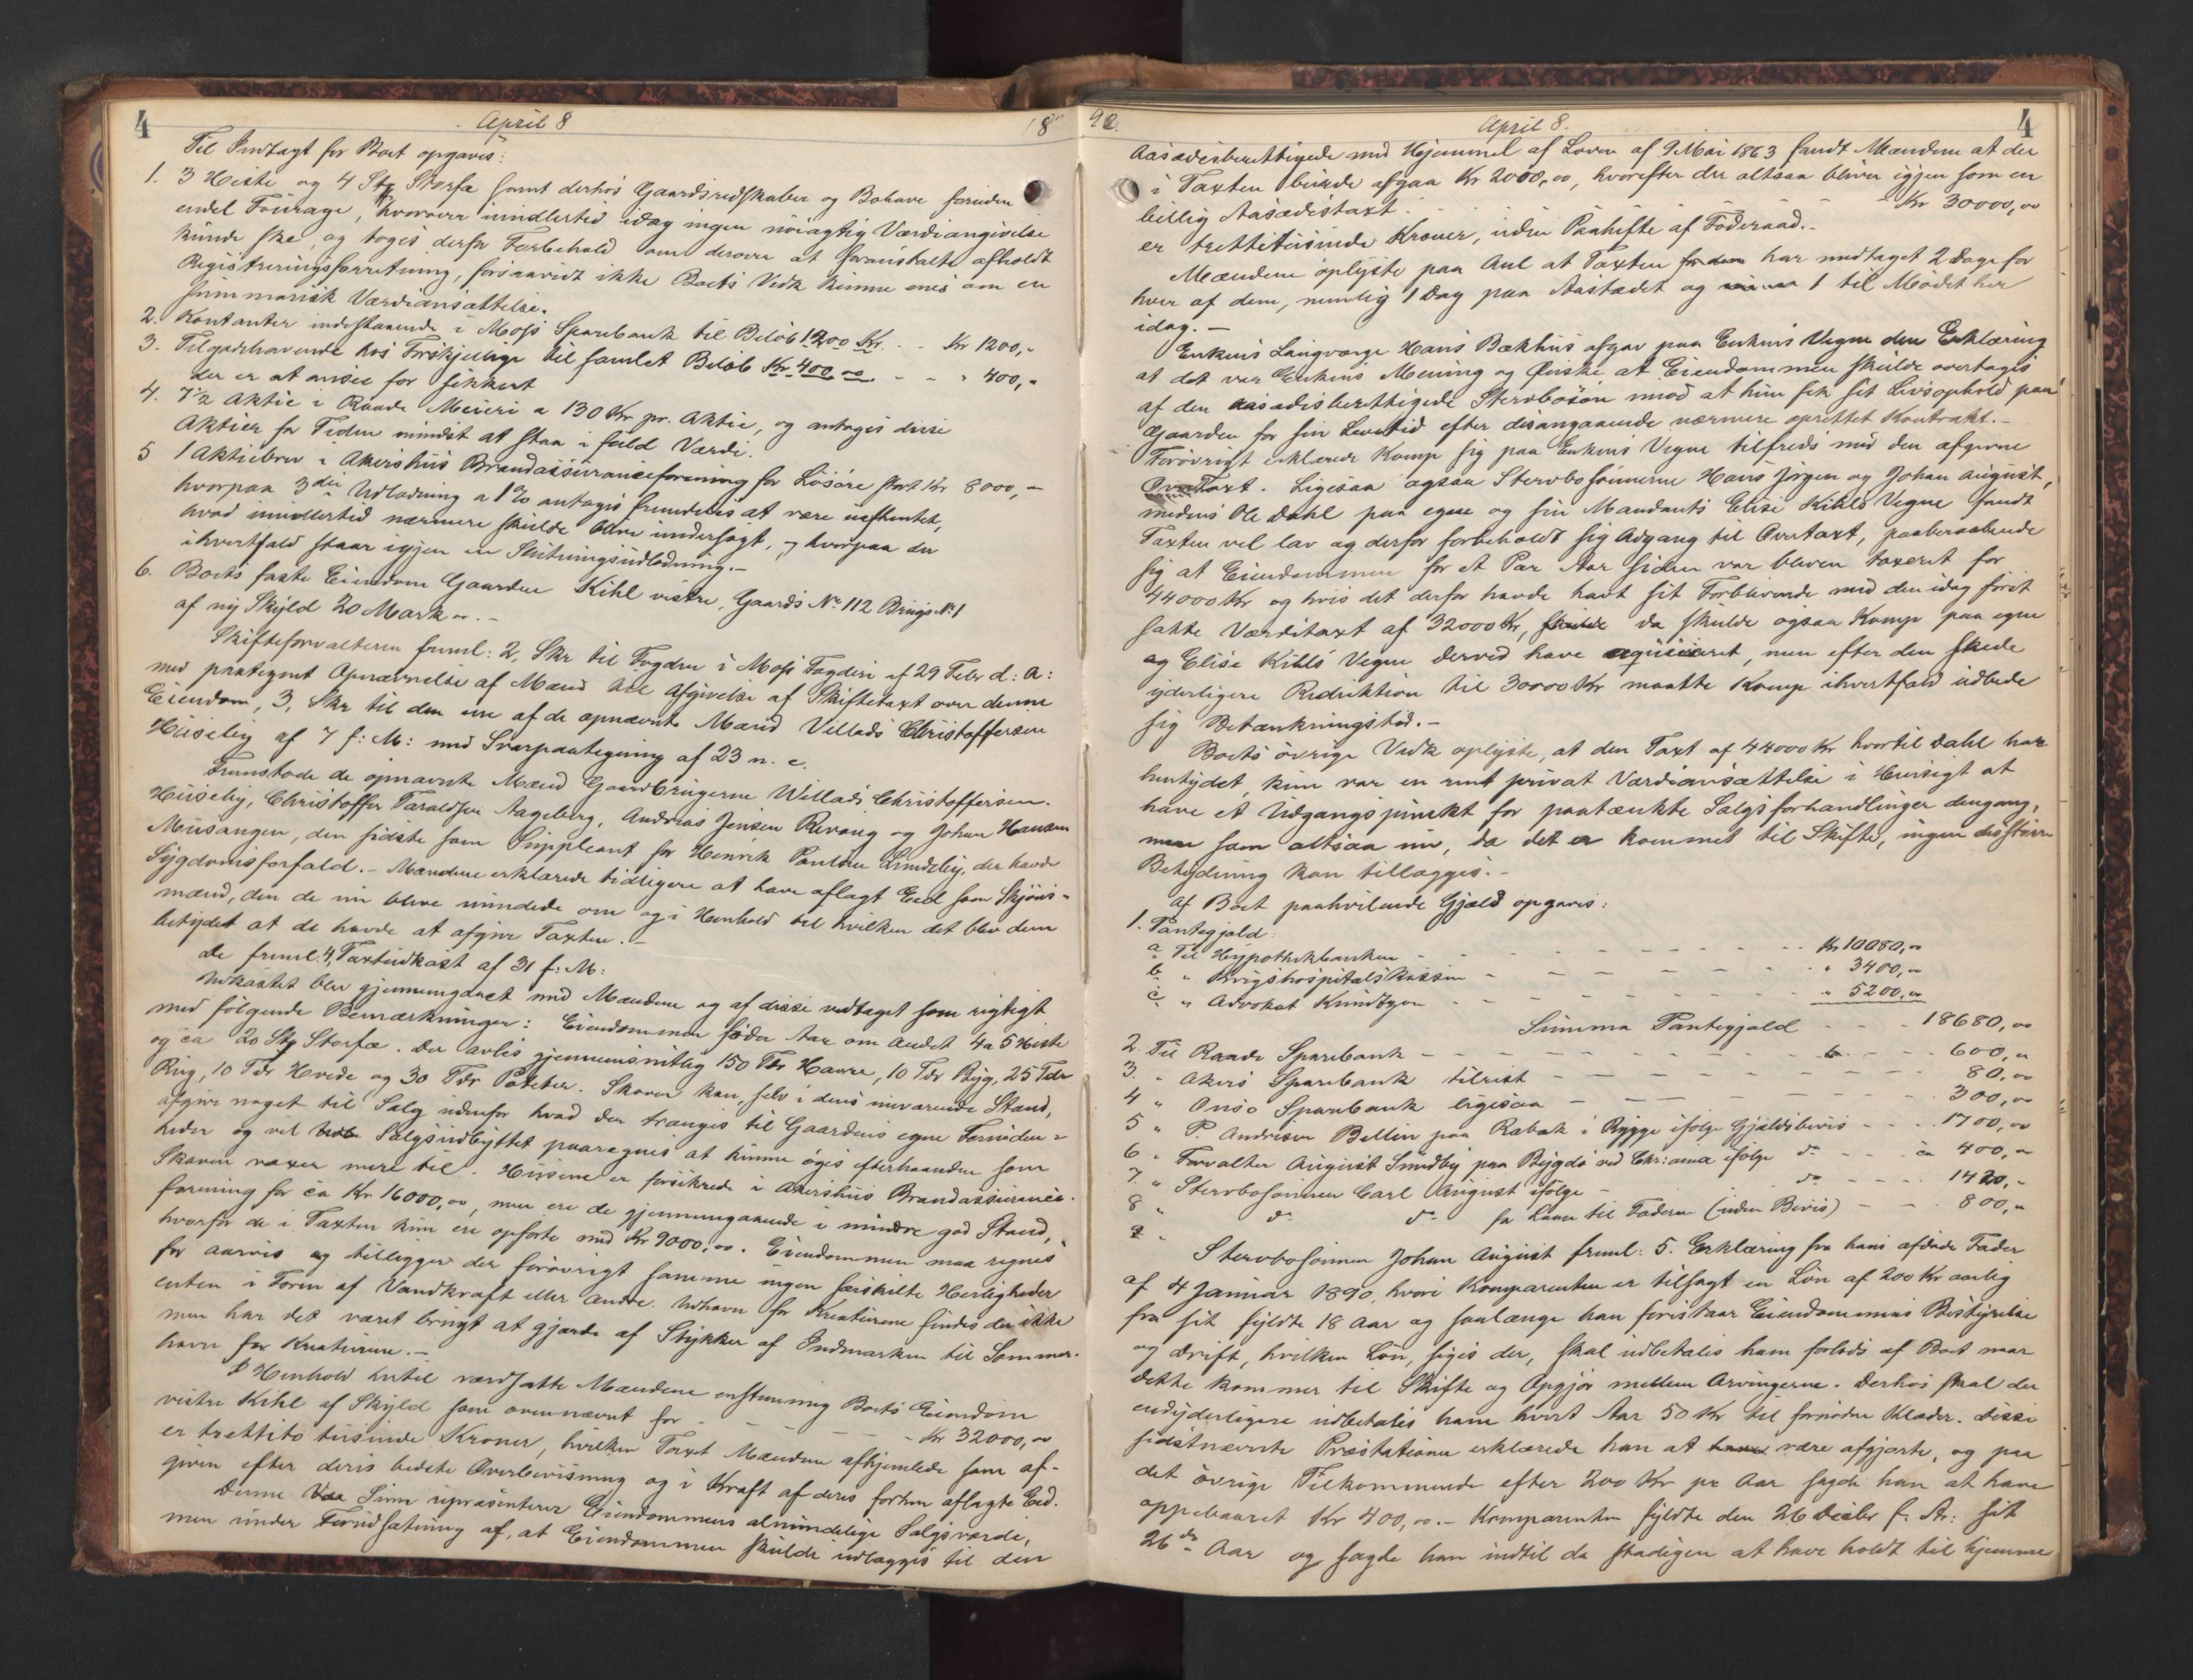 4
April 8
18
Til Indtægt for Boet opgaves:
1. 3 Heste og 4 Stk Storfæ samt derhos Gaardsredskaber og Bohave foruden
endel Fourage, hvorover imidlertid idag ingen nöiagtig Værdiangivelse
kunde ske, og toges derfor Forbehold om derover at foranstalte afholdt
Registreringsforretning, forsaavidt ikke Boets Vedk kunne enes om en
summarisk Værdiansættelse.
2. Kontanter indestaaende i Moss Sparebank til Belöb 1200 Kr. - - Kr 1200,-
3. Tilgodehavende hos Forskjellige til samlet Belöb Kr 400,00 - - " 400,-
der er at ansee for sikkert
4. 7½ Aktie i Raade Meieri a 130 Kr pr. Aktie, og antages disse
Aktier for Tiden mindst at staa i fuld Værdi.
5 1 Aktiebrev i Akershus Brandassuranceforening for Lösöre stort Kr 8000,-
hvorpaa 3die Udlodning a 1% antages fremdeles at være uafhentet,
hvad imidlertid nærmere skulde blive undersögt, og hvorpaa der
ihvertfald staar igjen en Slutningsudlodning.-
6. Boets faste Eiendom Gaarden Kihl vestre, Gaards No 112 Brugs No 1
af ny Skyld 20 Mark ".-
Skifteforvalteren freml: 2, Skr til Fogden i Moss Fogderi af 29 Febr d: A:
med paategnet Opnævnelse af Mænd til Afgivelse af Skiftetaxt over denne
Eiendom, 3, Skr til den ene af de opnævnte Mænd Villads Christoffersen
Huseby af 7 f: M: med Svarpaategning af 23 n. e.
Fremstode de opnævnte Mænd Gaardbrugerne Willads Christoffersen.
Huseby, Christoffer Taraldsen Aageberg, Andreas Jensen Revoug og Johan Hansen
Musangen, den sidste som Suppleant for Henrik Paulsen Lundeby, der havde
Sygdomsforfald.- Mændene erklærede tidligere at have aflagt Eed som Skjöns-
mænd, den de nu bleve mindede om og i Henhold til hvilken det blev dem
betydet at de havde at afgive Taxten.-
De freml: 4, Taxtudkast af 31 f: M:
Udkastet blev gjennemgaaet med Mændene og af disse vedtaget som rigtigt
med fölgende Bemærkninger: Eiendommen föder Aar om andet 4 a 5 Heste
og ca 20 Stk Storfæ. Der avles gjennemsnitlig 150 Tdr Havre, 10 Tdr Byg, 25 Tdr
Rug, 10 Tdr Hvede og 30 Tdr Poteter. Skoven kan, selv i dens nuværende Stand,
afgive noget til Salg udenfor hvad der trænges til Gaardens egne Fornöden-
heder og vel Salgsudbyttet paaregnes at kunne öges efterhaanden som
Skoven voxer mere til. Husene er forsikrede i Akershus Brandassurance-
forening for ca Kr 16000,00, men ere de gjennemgaaende i mindre god Stand,
hvorfor de i Taxten kun ere opförte med Kr 9000,00. Eiendommen maa regnes
for aarvis og tilligger der forövrigt samme ingen særskilte Herligheder
enten i Form af Vandkraft eller andre. Udhavn for Kreaturene findes der ikke
men har det været brugt at gjærde af Stykker af Indmarken til Sommer-
havn for Kreaturene.-
I Henhold hertil værdsatte Mændene enstemmig Boets Eiendom
vestre Kihl af Skyld som ovennævnt for - - - - Kr 32000,00
er trettito tusinde Kroner, hvilken Taxt Mændene afhjemlede som af-
given efter deres bedste Overbevisning og i Kraft af deres forhen aflagte Eed.
Denne Sum repræsenterer Eiendommens almindelige Salgsværdi,
men under Forudsætning af, at Eiendommen skulde udlægges til den
92.
April 8.
4
Aasædesberettigede med Hjemmel af Loven af 9 Mai 1863 fandt Mændene at der
i Taxten burde afgaa Kr 2000,00, hvorefter der altsaa bliver igjen som en
billig Aasædestaxt. - - - - Kr 30000,00
er trettitusinde Kroner, uden Paahefte af Föderaad.-
Mændene oplyste paa Anl at Taxten har medtaget 2 Dage for
hver af dem, nemlig 1 Dag paa Aastedet og 1 til Mödet her
idag.-
Enkens Laugværge Hans Bækhus afgav paa Enkens Vegne den Erklæring
at det var Enkens Mening og Önske at Eiendommen skulde overtages
af den aasædesberettigede Stervbosön mod at hun fik sit Livsophold paa
Gaarden for sin Levetid efter desangaaende nærmere oprettet Kontrakt.-
Forövrigt erklærede Komp sig paa Enkens Vegne tilfreds med den afgivne
Taxt. Ligesaa ogsaa Stervbosönnerne Hans Jörgen og Johan August,
medens Ole Dahl paa egne og sin Mandants Elise Kihls Vegne fandt
Taxten vel lav og derfor forbeholdt sig Adgang til Overtaxt, paaberaabende
sig at Eiendommen for et Par Aar siden var bleven taxeret for
44000 Kr og hvis det derfor havde havt sit Forblivende med den idag först
satte Værditaxt af 32000 Kr, da skulde ogsaa Komp paa egne
og Elise Kihls Vegne derved have aquieceret, men efter den skede
yderligere Reduktion til 30000 Kr maatte Komp ihvertfald udbede
sig Betænkningstid.-
Boets övrige Vedk oplyste, at den Taxt af 44000 Kr hvortil Dahl har
hentydet, kun var en rent privat Værdiansættelse i Hensigt at
have et Udgangspunkt for paatænkte Salgsforhandlinger dengang,
men som altsaa nu, da det er kommet til Skifte, ingen
Betydning kan tillægges.-
Af Boet paahvilende Gjæld opgaves:
1. Pantegjæld:
a. Til Hypothekbanken - - - - Kr 10080,00
b. " Krigshospitalskassen - - - - " 3400,00
c. " Advokat Knudtzon - - - - " 5200,00
Summa Pantegjæld - - - 18680,00
2. Til Raade Sparebank - - - - 600,"
3. " Akers Sparebank tilrest - - - - 80,00
4 " Onsö Sparebank ligesaa - - - - 300,00
5 " P. Andresen Bellin paa Rabæk i Rygge ifölge Gjældsbevis - - - 1700,00
6 " Forvalter August Sundby paa Bygdö ved Chr:ania ifölge do - - ca 400,"
7. " Stervbosönnen Carl August ifölge - do - - - 1420,-
8 " do do for Laan til Faderen (uden Bevis) - - 800,"
9 -
Stervbosönnen Johan August freml: 5. Erklæring fra hans afdöde Fader
af 4 Januar 1890, hvori Komparenten er tilsagt en Lön af 200 Kr aarlig
fra sit fyldte 18 Aar og saalænge han forestaar Eiendommens Bestyrelse
og Drift, hvilken Lön, siges der, skal udbetales ham forlods af Boet naar
dette kommer til Skifte og Opgjör mellem Arvingerne. Derhos skal der
endyderligere udbetales ham hvert Aar 50 Kr til fornödne Klæder. Disse
sidstnævnte Præstationer erklærede han at være afgjorte, og paa
det övrige Tilkommende efter 200 Kr pr Aar sagde han at have
oppebaaret Kr 400,00.- Komparenten fyldte den 26 Decbr f. Ar: sit
26de Aar og sagde han indtil da stadigen at have holdt til hjemme